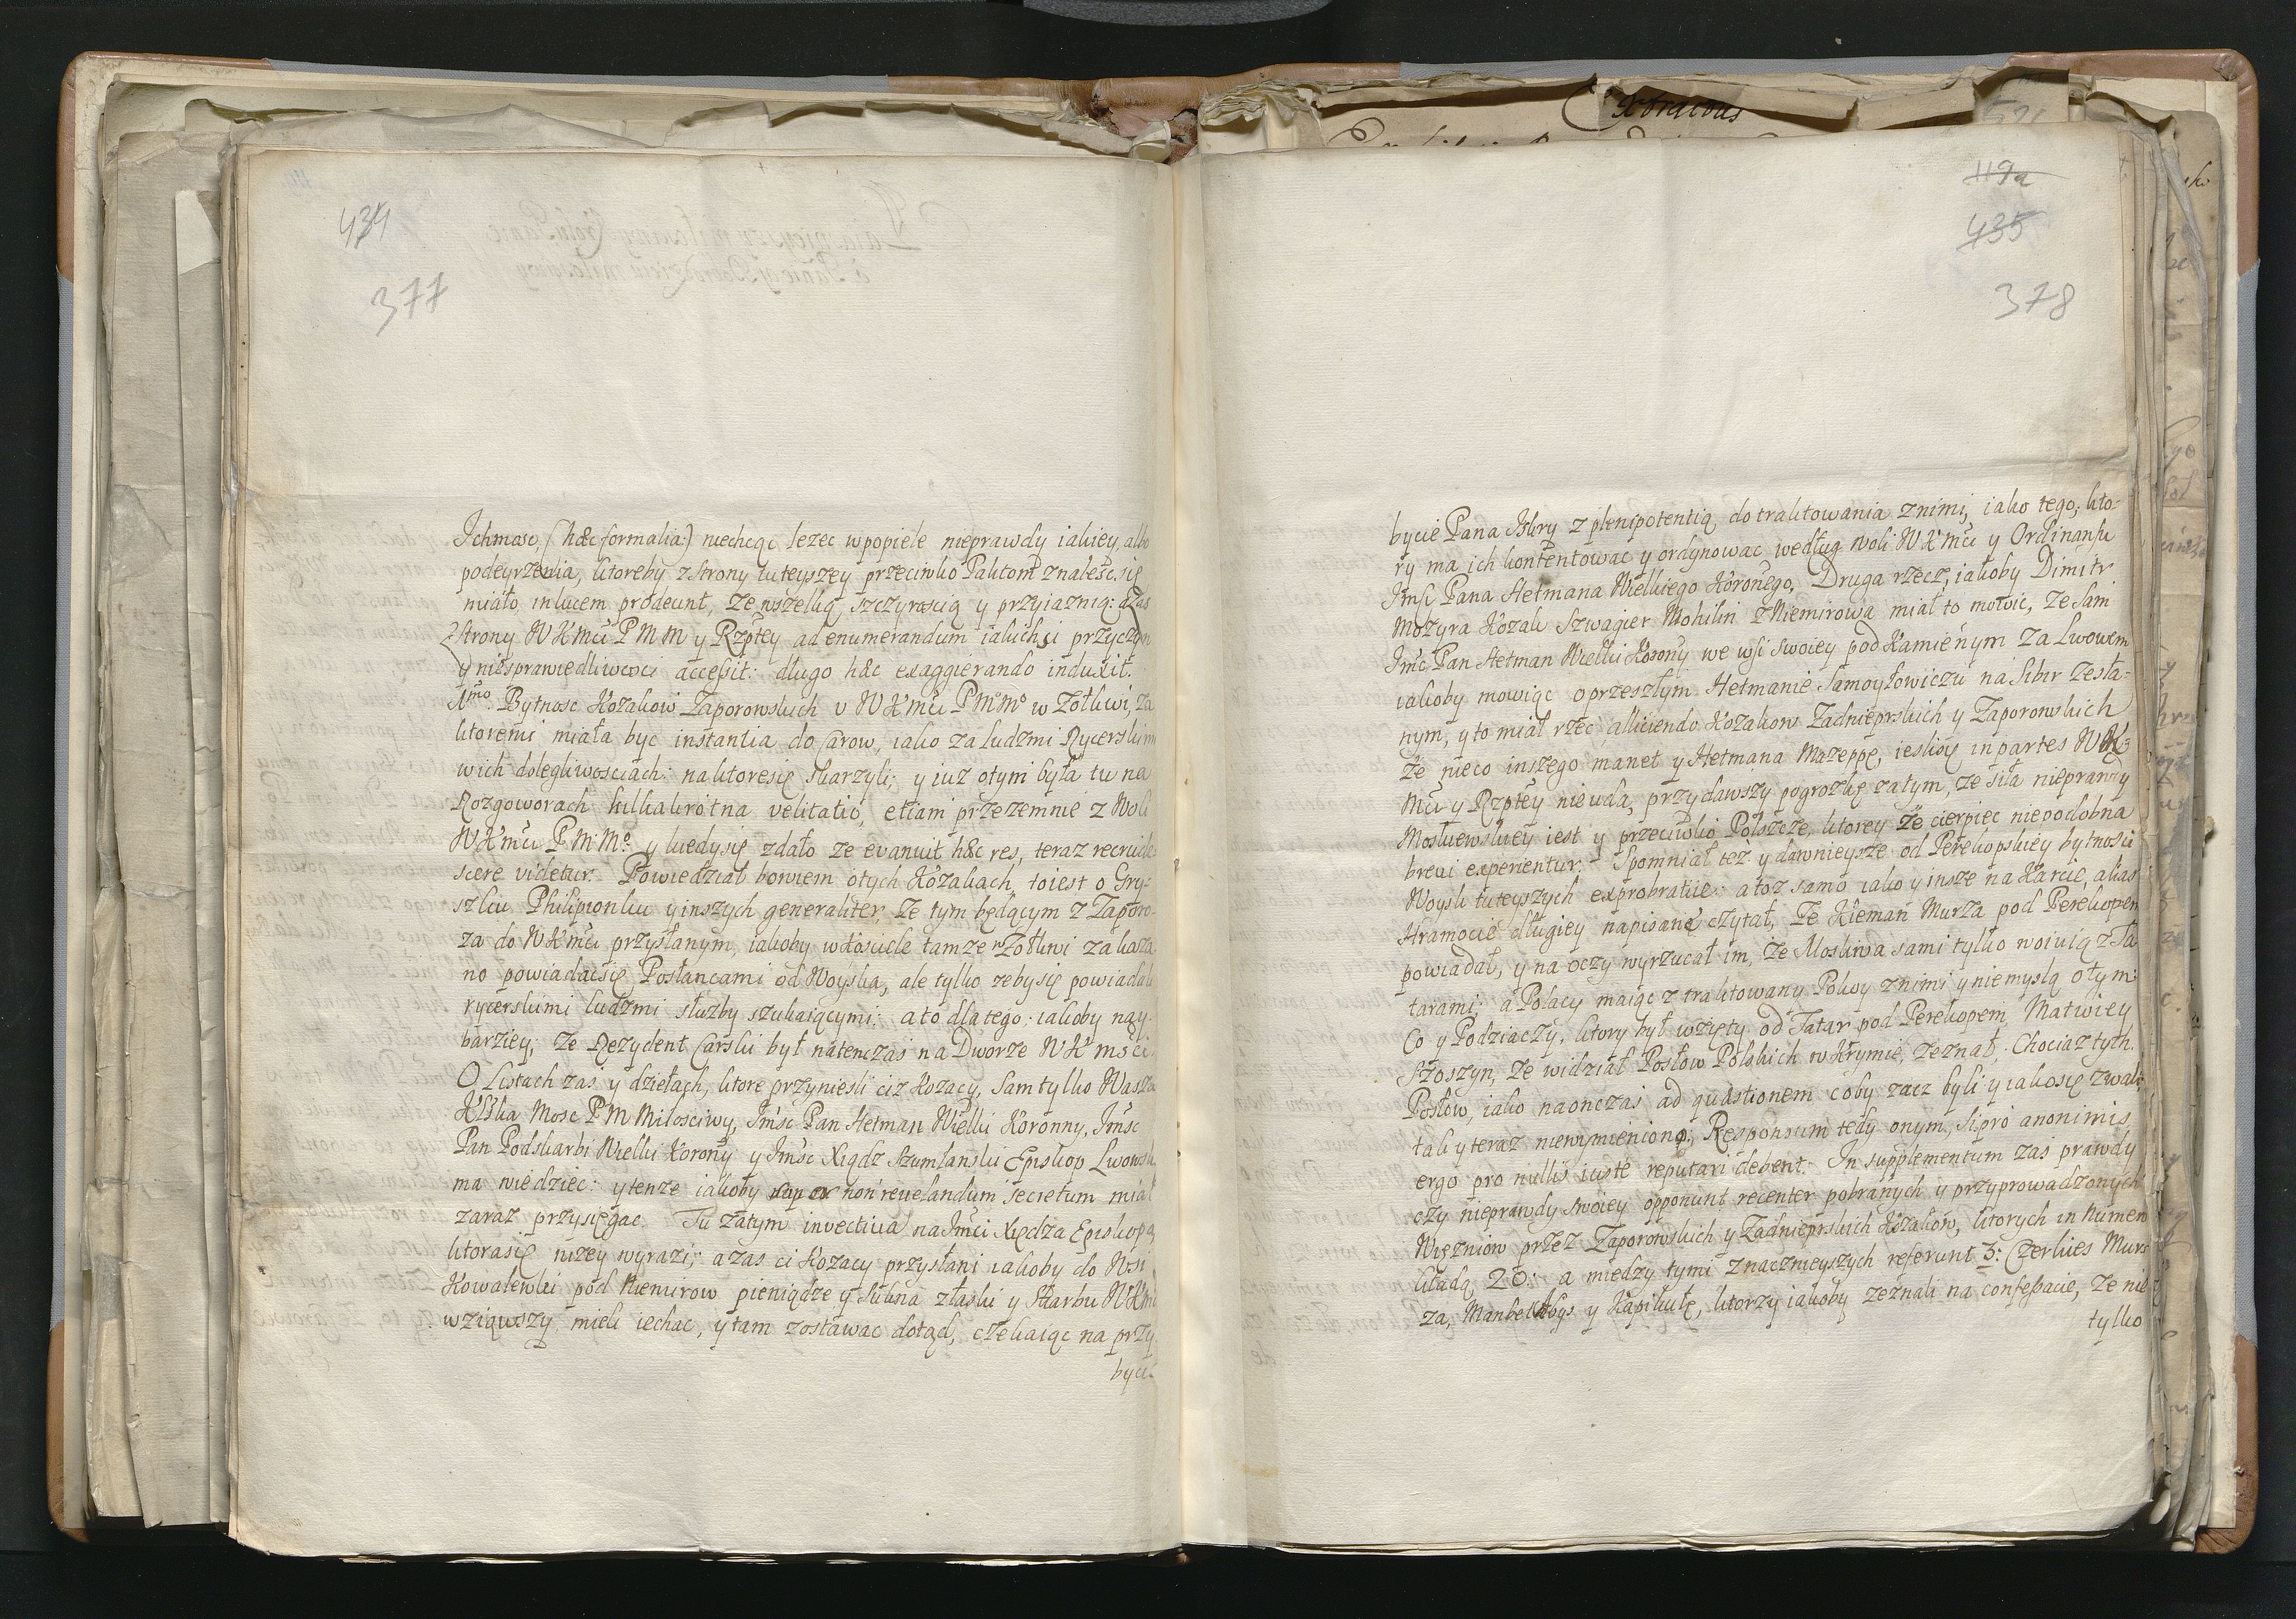 434
377
Ichmasc, (hæc formalia:) niechcąc lezec wpopiele nieprawdy iakiey, albo
podeyrzenia, ktoreby z strony tuteyszey przeciwko Paktom znalesc się
miało, in lucem prodeunt, ze wszelką szczyroscią y przyiaznią: a zas
z strony WKmći PMM y Rzptey ad enumerandum iakichsi przyczyn
y niesprawiedliwosci accessit: długo hæc exaggierando induxit.
1mo. Bytnosc Kozakow Zaporowskich v WKmći PMMo w Zołkwi, za
ktoremi miała byc instantia do Carow, iako za ludzmi Rycerskimi
wich dolegliwosciach: naktoresię skarzyli; y iuz otym była tu na
Rozgoworach kilkakrotna velitatio, etiam przezemnie z Woli
WKmći PMMo y kiedysię zdało ze evanuit hæc res, teraz recrude
scere videtur. Powiedział bowiem otych Kozakach, toiest o Gry-
szku Philipionku y inszych generaliter, Ze tym będącym z Zaporo-
za do WKmći przysłanym, iakoby wkosciele tamze w Zołkwi zakaza
no powiadacsię Posłancami od Woyska, ale tylko zebysię powiadali
rycerskimi ludzmi słuzby szukaiącymi: ato dlatego; iakoby nay-
barziey, ze Rezydent Carski był natenczas na Dworze WKmści.
O Listach zas y dziełach, ktore przyniesli ciz Kozacy, sam tylko Wasza
Kłska Mosc PM Miłosciwy, Jmśc Pan Hetman Wielki Koronny, Jmśc
Pan Podskarbi Wielki Korony y Jmśc Xiądz Szumlanski Episkop Lwowsk
ma wiedziec: ytenze iakoby non revelandum secretum miał
zaraz przysięgac. Tu zatym invectiva na Jmći Xiędza Episkopa,
ktorasię nizey wyrazi; azas ci Kozacy przysłani iakoby do Wsi
Kowalewki pod Niemirow pieniądze y Sukna złaski y Skarbu WKmći
wziąwszy mieli iechac, ytam zostawac dotąd, czekaiąc na przy
bycie
119a
435
378
bycie Pana Iskry z plenipotentią do traktowania znimi, iako tego, kto-
ry ma ich kontentowac y ordynowac według Woli WKmći y Ordinansu
Jmśc Pana Hetmana Wielkiego Koronego, Druga rzecz, iakoby Dimitr
Mozyra Kozak Szwagier Mohilin z Niemirowa miał to mowic, Ze sam
Jmśc Pan Hetman Wielki Korony we wsi swoiey pod Kamienym za Lwowem
iakoby mowiąc oprzeszłym Hetmanie Samoyłowiczu na Sibir zesła-
nym, yto miał rzec, alliciendo Kozakow Zadnieprskich y Zaporowskich
Ze nieco inszego manet y Hetmana Mazeppę, ieslisię inpartes WK
Mći y Rzptey nieuda, przydawszy pogrozkę zatym, ze siła nieprawdy
Moskiewskiey iest y przeciwko Polszcze, ktorey ze cierpiec niepodobna
brevi experientur. Spomniał też y dawnieysze od Perekopskiey bytnosci
Woysk tuteyszych exprobratie: atoz samo iako y insze na Karcie, alias
Hramocie długiey napisane czytał, Ze Kieman Murza pod Perekopem
powiadał, y na oczy wyrzucał im, ze Moskwa sami tylko woiuią z Ta
tarami, a Polacy maiąc ztraktowany Pokoy znimi y niemyslą otym:
Co y Podziaczy, ktory był wzięty od Tatar pod Perekopem, Matwiey
Szoszyn, ze widział Posłow Polskich w Krymie, zeznał. Chociaz tych
Posłow, iako naonczas ad quæstionem coby zacz byli y iakosię zwali,
tak y teraz niewymieniono, Responsum tedy onym, si pro anonimis,
ergo pro nullis iuste reputari debent. In supplementum zas prawdy
czy nieprawdy swoiey opponunt recenter pobranych y przyprowadzonych
Więzniow przez Zaporowskich y Zadnieprskich Kozakow, ktorych in Numero
kładą 20: a między tymi znacznieyszych referunt 3: Czerkies Mur-
za, y Kapikułę, ktorzy iakoby zeznali na confessacie, ze nie
tylko